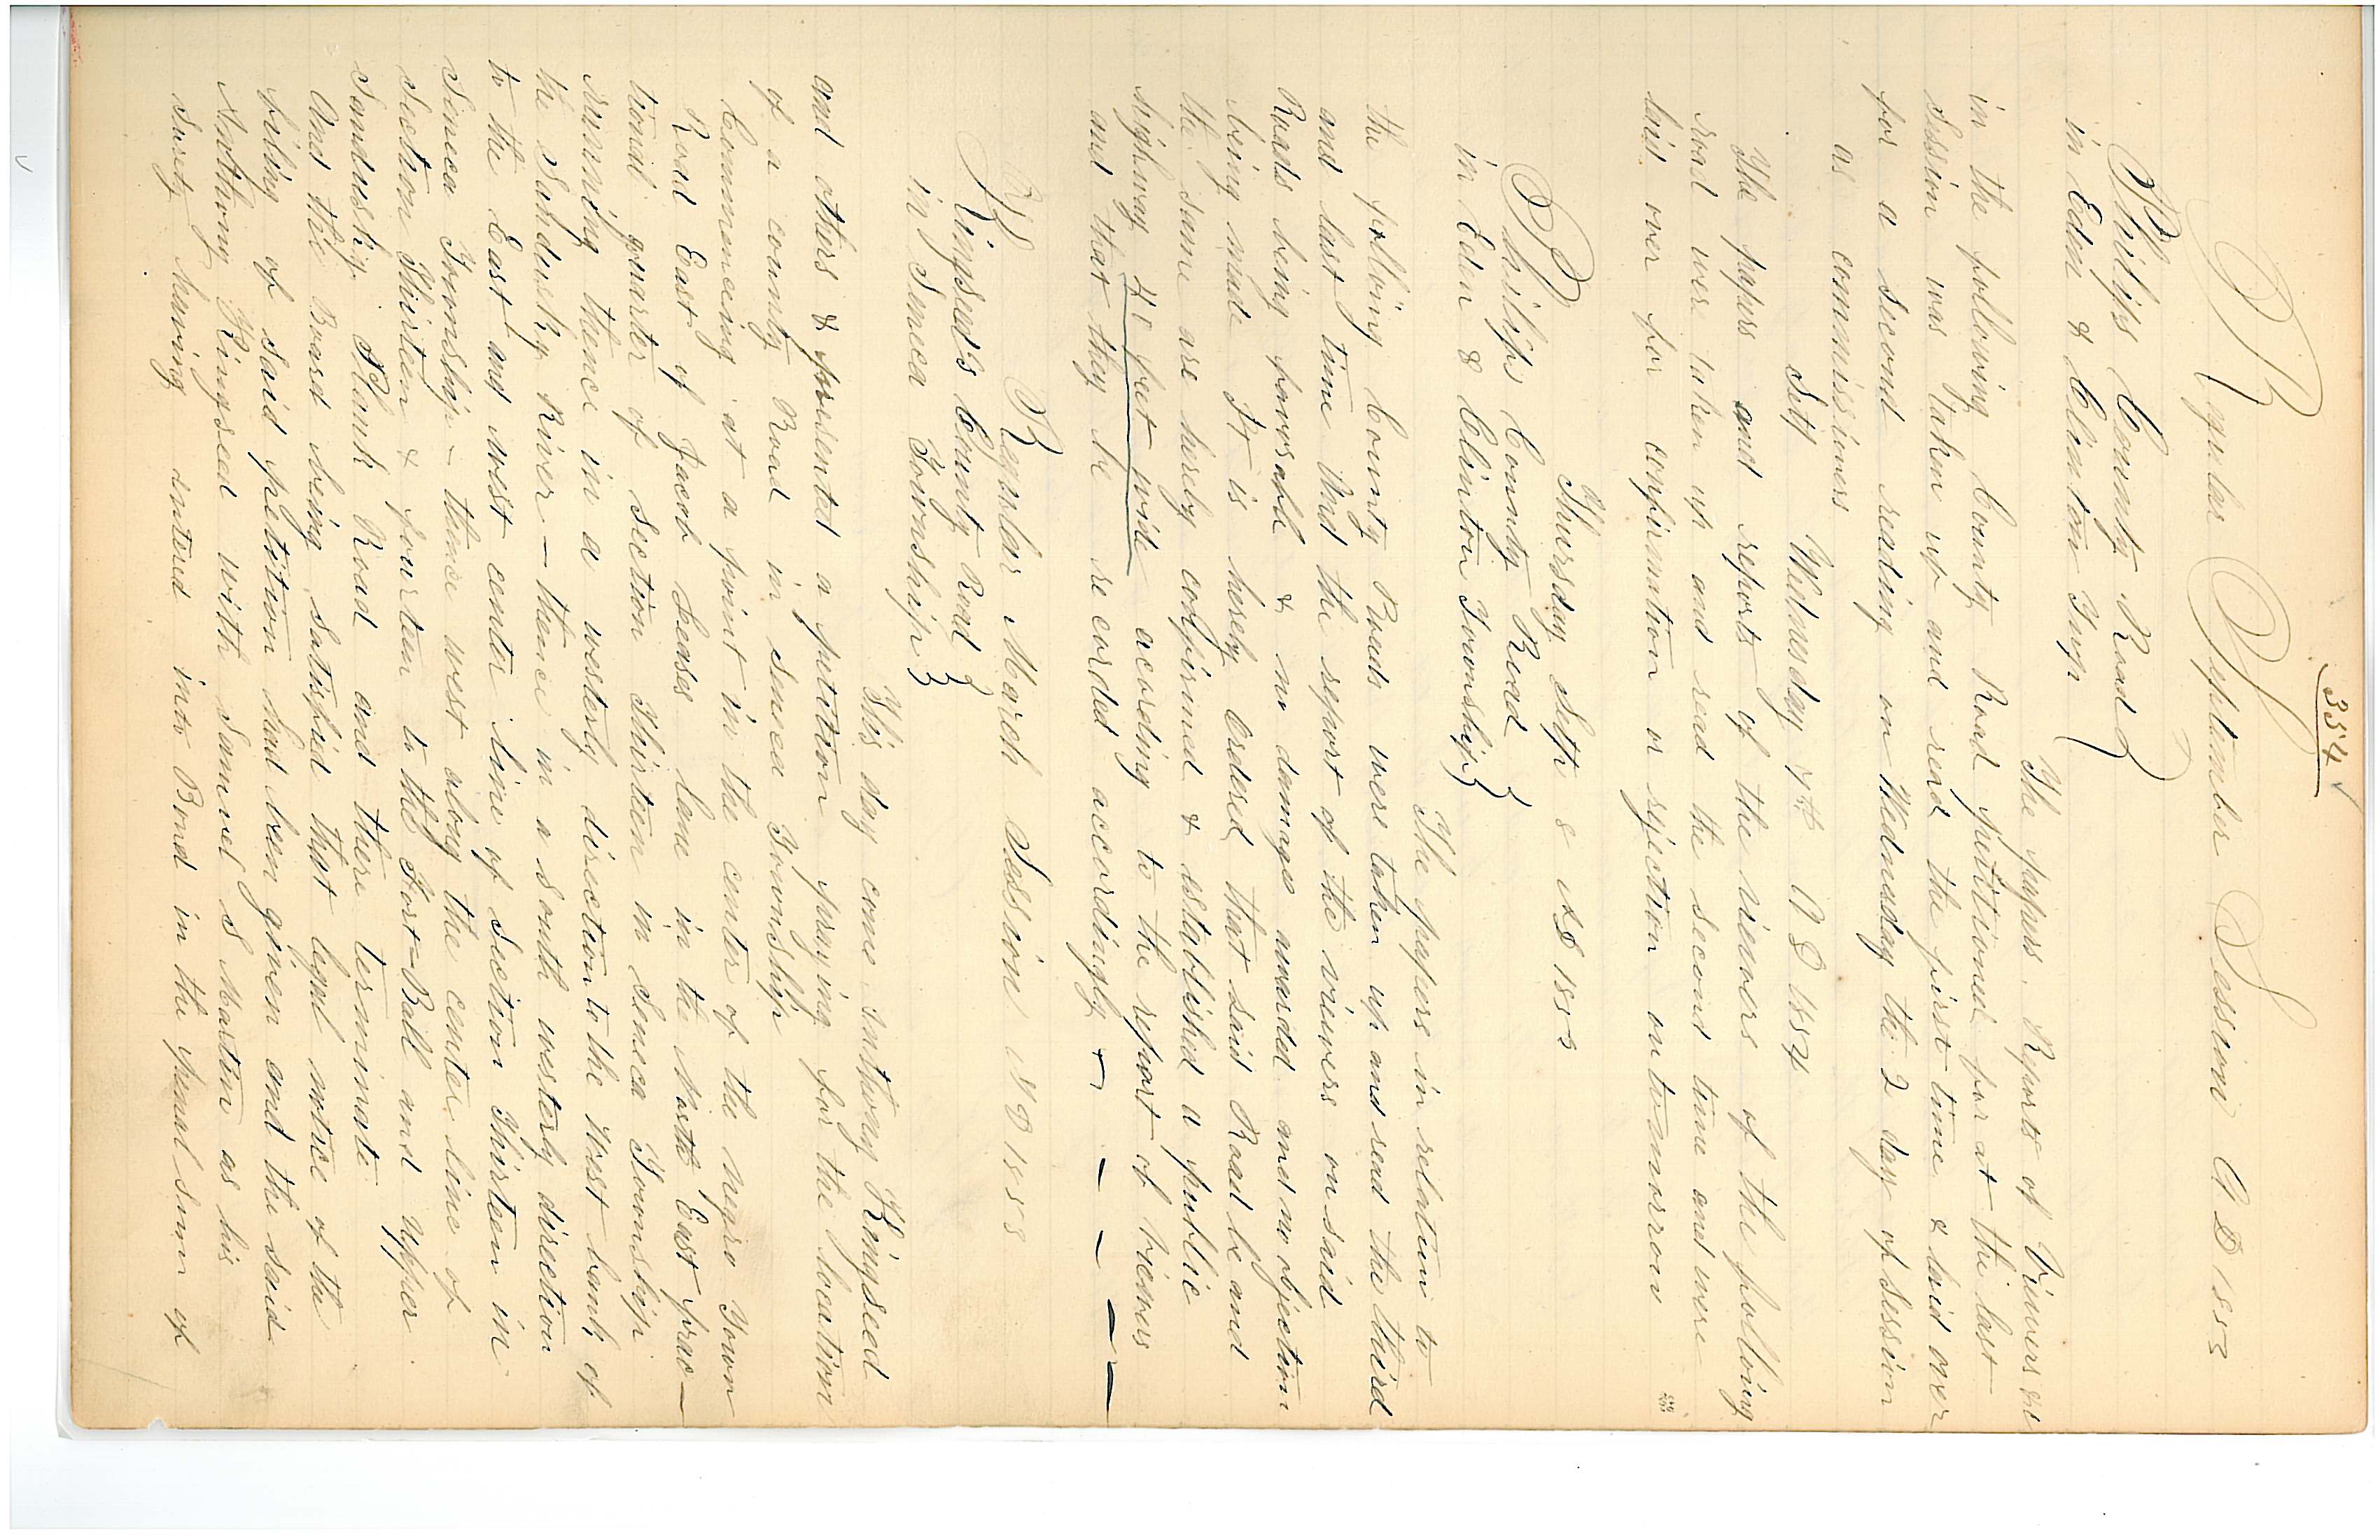 354 ✓
Regular September Session A D 1853
Philips County Road }
in Eden & Clinton Twp }
The papers. Reports of Viewers &c
in the following County Road petitioned for at the last
session was taken up and read the first time & laid over
for a second reading on Wednesday the 2 day of session
as commissioners
Sept Wednesday 7th A D 1854
The papers and reports of the viewers of the following
road were taken up and read the second time and were
laid over for confirmation or rejection on tomorrow
Thursday Sept 8 AD 1853
Philips County Road }
in Eden & Clinton Township }
The papers in relation to
the following County Roads were taken up and read the third
and last time And the report of the viewers on said
Roads being favorable & no damage awarded and no objection
being made It is hereby Ordered that said Road be and
the same are hereby confirmed & established a public
highway 40 feet wide according to the report of viewers
and that they be recorded accordingly
Regular March Session A D 1853
Kingseed's County Road }
in Seneca Township }
This day come Anthony Kingseed
and others & presented a petition praying for the location
of a county Road in Seneca Township
Commencing at a point in the center of the Negro Town
Road East of Jacob Leases lane in the North East frac-
tional quarter of section Thirteen in Seneca Township
running thence in a westerly direction to the West bank of
the Sandusky River - thence in a south westerly direction
to the East and west center line of Section Thirteen in
Seneca Township - thence west along the center line of
section Thirteen & fourteen to the Fort-Ball and Upper
Sandusky Plank Road and there terminate
And the Board being satisfied that legal notice of the
filing of said petition had been given and the said
Anthony Kingseed with Samuel S Martin as his
surety having entered into Bond in the penal sum of